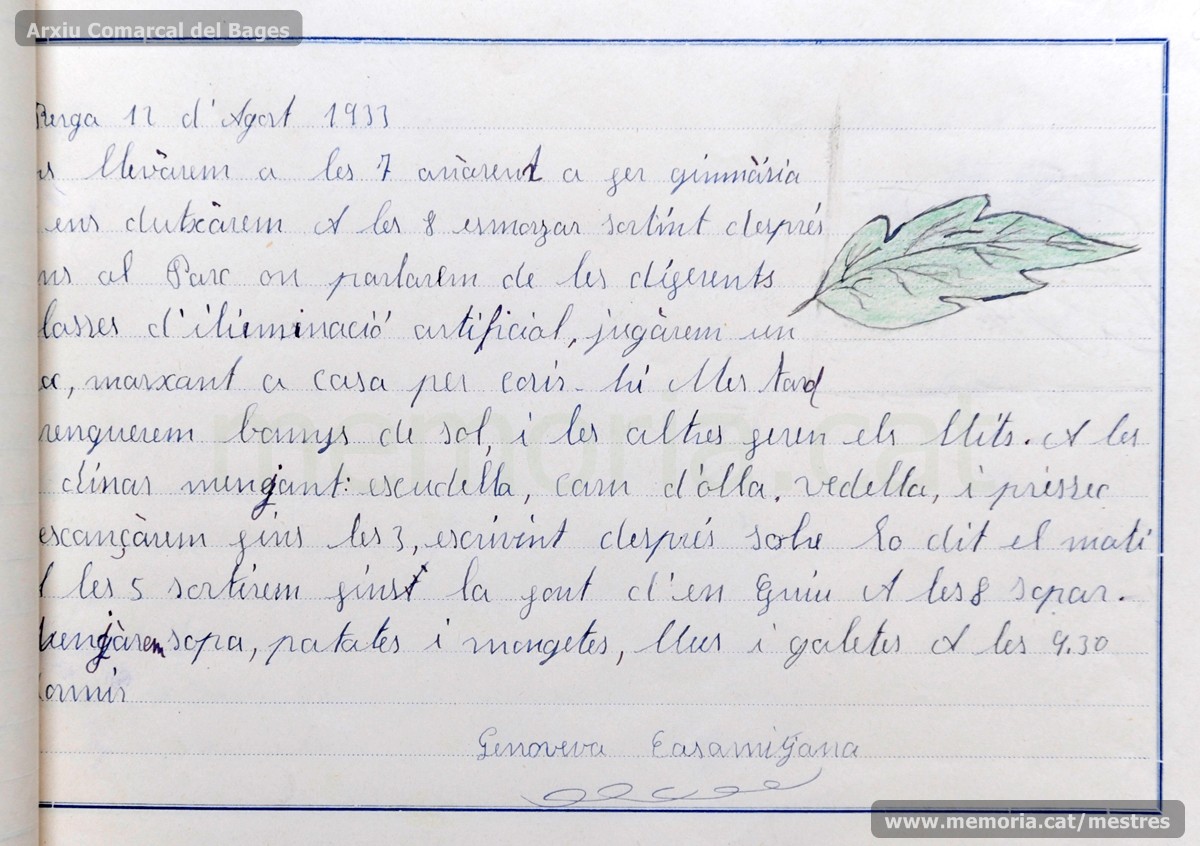 Arxiu Comarcal del Bages
Berga 12 d'Agost 1933
ns llevàrem a les 7 anàrem a fer gimnàsia
ens dutxàrem A les 8 esmorzar sortint després
ns al Parc on parlarem de les diferents
lasses d'iluminació artificial, jugàrem un
oc, marxant a casa per cosir-hi Mes tard
renguerem banys de sol i les altres feren els llits. A les
dinar menjant: escudella, carn d'olla, vedella, i préssec
escançàrem fins les 3, escrivint després sobre lo dit el mati
A les 5 sortirem fins la font d'en Guiu A les 8 sopar.
Menjàrem sopa, patates i mongetes, lluç i galetes A les 9.30
dormir
Genoveva Casamitjana
memoria.cat
www.memoria.cat/mestres